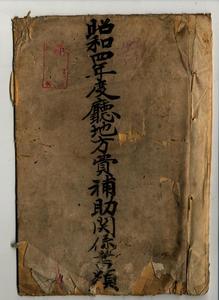 昭和四年度廳地方賞補助関係書類